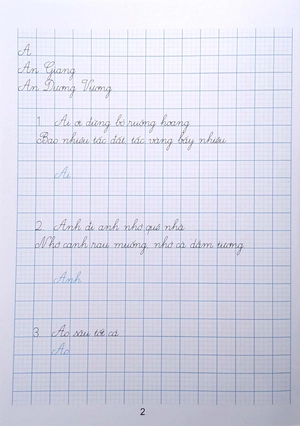 A
An Giang
An Dương Vương
1. Ai ơi đừng bỏ ruộng hoang
Bao nhiêu tấc đất, tấc vàng bấy nhiêu
Ai
2. Anh đi anh nhớ quê nhà
Nhớ canh rau muống, nhớ cà dầm tương
Anh
3. Ao sâu tốt cá
Ao
2